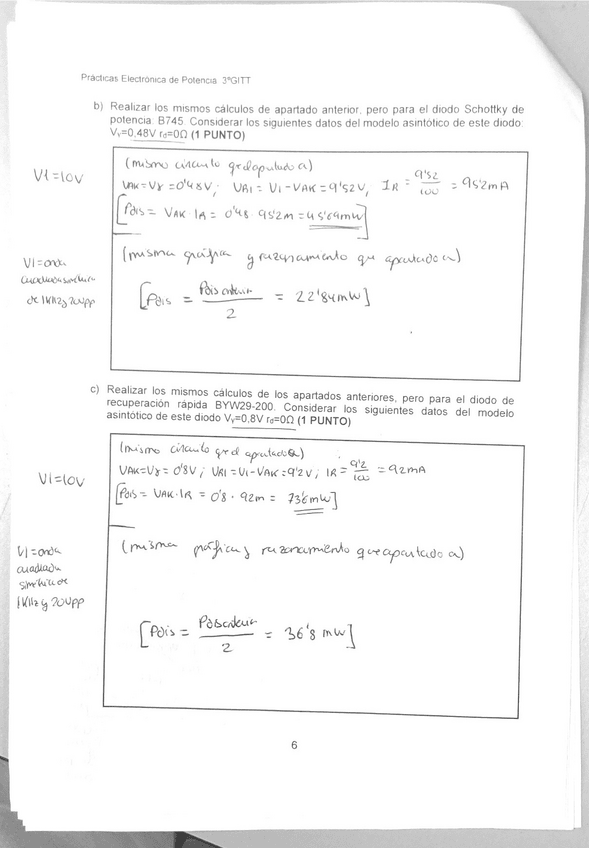 Prácticas Electrónica de Potencia 3ºGITT
b) Realizar los mismos cálculos de apartado anterior, pero para el diodo Schottky de
potencia: B745. Considerar los siguientes datos del modelo asintótico de este diodo:
Vγ=0,48V rd=0Ω (1 PUNTO)
V1=10V
(mismo circuito q el apartado a)
VAK=Vγ=0'48V; VR1=V1-VAK=9'52V, IR = 9'52/100 = 95'2mA
[Pdis = VAK·IR = 0'48·95'2m = 45'69mW]
V1=onda
cuadrada simétrica
de 1KHz y 20Vpp
(misma gráfica y razonamiento que apartado a)
[Pdis = Pdis anterior/2 = 22'84mW]
c) Realizar los mismos cálculos de los apartados anteriores, pero para el diodo de
recuperación rápida BYW29-200. Considerar los siguientes datos del modelo
asintótico de este diodo Vγ=0,8V rd=0Ω (1 PUNTO)
V1=10V
(mismo circuito q el apartado a)
VAK=Vγ=0'8V; VR1=V1-VAK=9'2V; IR=9'2/100=92mA
[Pdis = VAK·IR = 0'8·92m = 73'6mW]
V1=onda
cuadrada
simétrica de
1KHz y 20Vpp
(misma gráfica y razonamiento que apartado a)
[Pdis = Pdis anterior/2 = 36'8 mW]
6